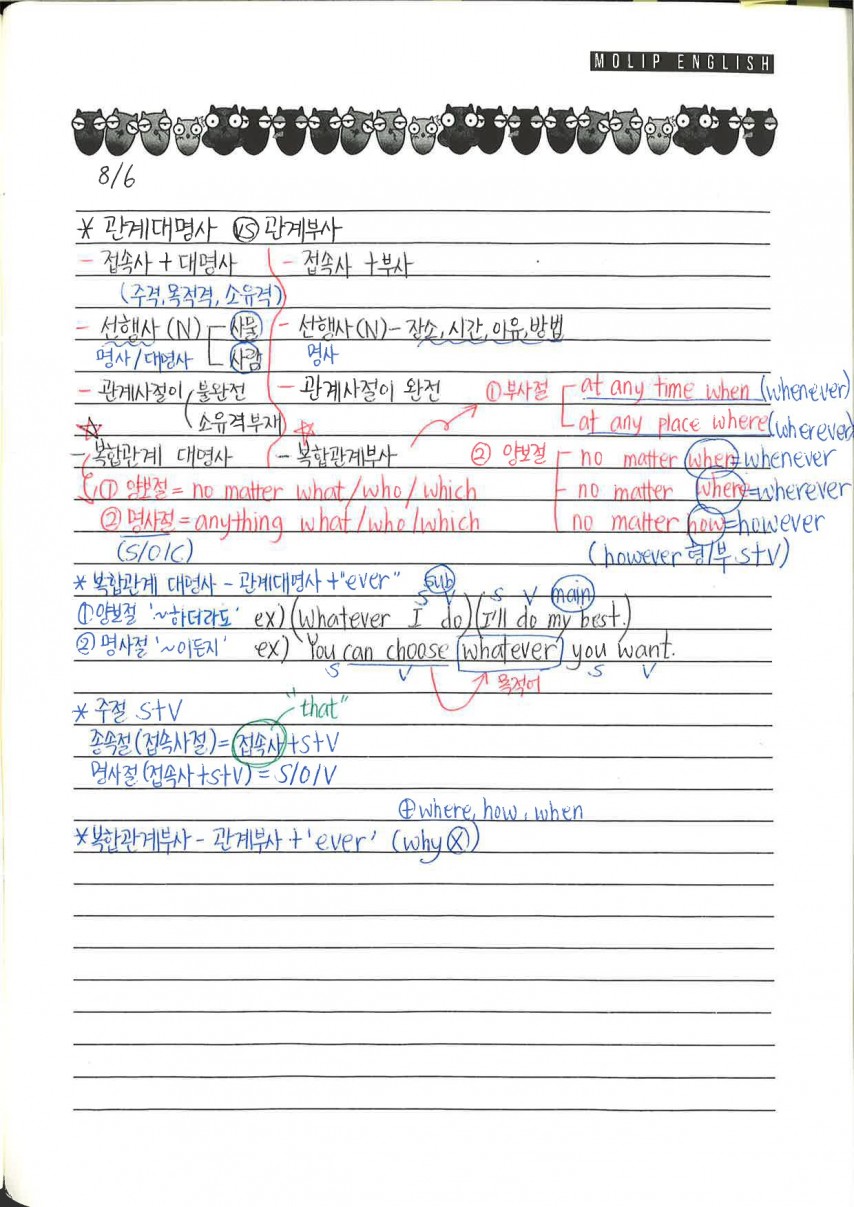 MOLIP ENGLISH
8/6
* 관계대명사 VS 관계부사
- 접속사 + 대명사 - 접속사 + 부사
(주격, 목적격, 소유격)
- 선행사 (N) 사물 - 선행사 (N) - 장소, 시간, 이유, 방법
명사/대명사 사람 명사
- 관계사절이 불완전 - 관계사절이 완전 ① 부사절 at any time when (whenever)
소유격부재 at any place where (wherever)
- 복합관계 대명사 - 복합관계부사 ② 양보절 no matter when = whenever
① 양보절 = no matter what/who/which no matter where = wherever
② 명사절 = anything what/who/which no matter how = however
(S/O/C) (however 형/부 S+V)
* 복합관계 대명사 - 관계대명사 + "ever" sub S V S V main
① 양보절 '~하더라도' ex) (Whatever I do) (I'll do my best.)
② 명사절 '~이든지' ex) You can choose whatever you want.
S V 목적어 S V
* 주절 S+V "that"
종속절 (접속사절) = 접속사 + S+V
명사절 (접속사+S+V) = S/O/V
⊕ where, how, when
* 복합관계부사 - 관계부사 + 'ever' (why ⓧ)